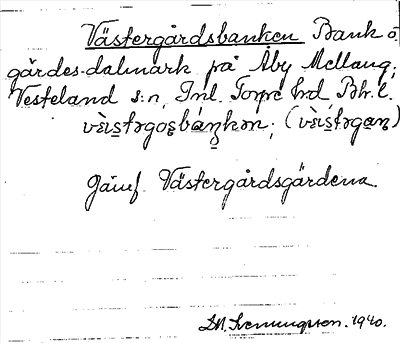 Västergårdsbanken Bank o.
gärdes-dalmark på Åby Mellang,
Vesteland s:n, Inl. Torpe hd Bh. l.
vèis̠təgos̠báŋkən; (vèis̠təgaṇ)
Jämf. Västergårdsgärdena.
1940.